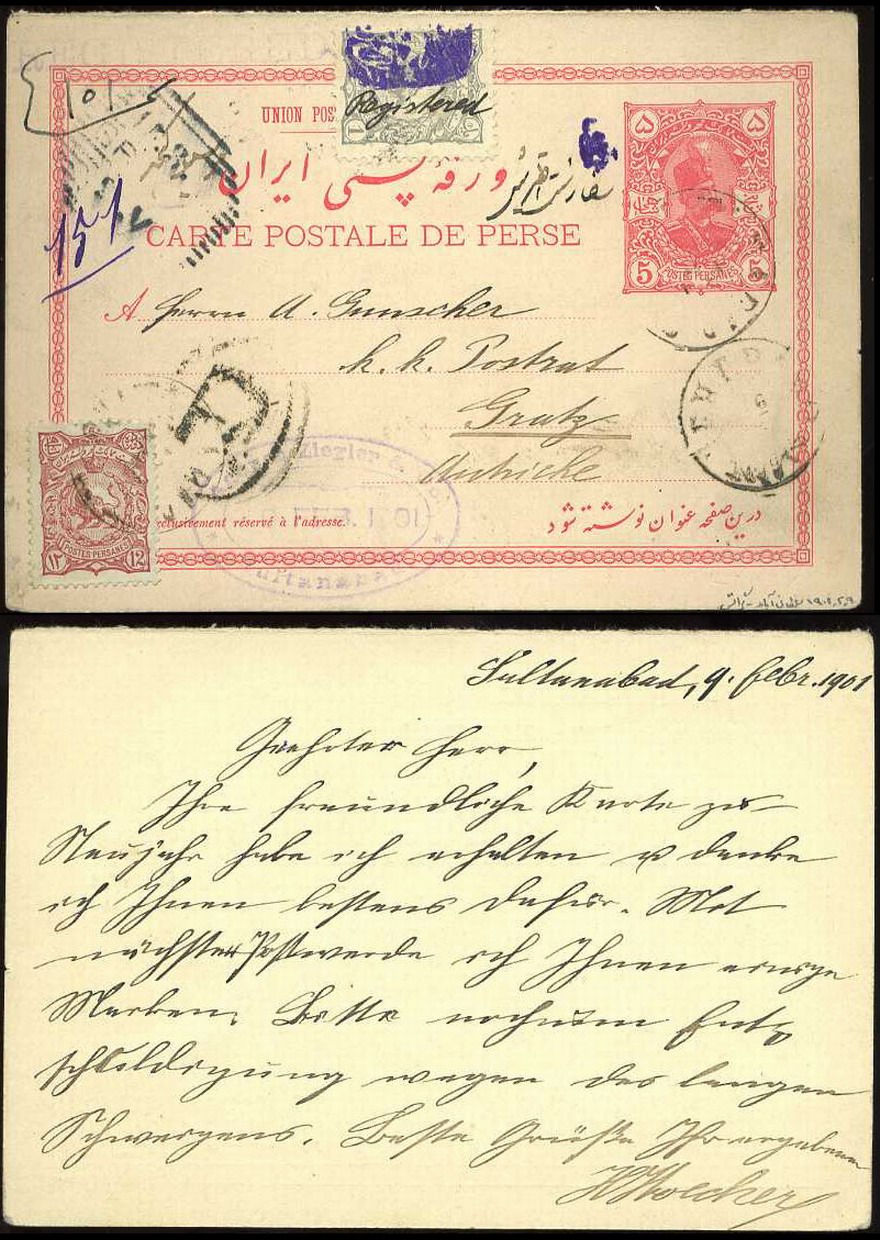 UNION POS
Registered
ورقه پستی ایران
CARTE POSTALE DE PERSE
۵ ۵
5 5
POSTES PERSANES
A Herrn A. Gunscher
k. k. Postrat
Gratz
Autriche
Ziegler &
FEB. 1901
ultanabad
12
۱۲
POSTES PERSANES
exclusivement réservé à l'adresse.
درین صفحه عنوان نوشته شود
Sultanabad, 9. Febr. 1901
Geehrter Herr,
Ihre freundliche Karte zu
Neujahr habe ich erhalten u danke
ich Ihnen bestens dafür. Mit
nächster Post werde ich Ihnen einige
Marken. Bitte nochm Ent-
schuldigung wegen des langen
Schweigens. Beste Grüße Ihr ergebener